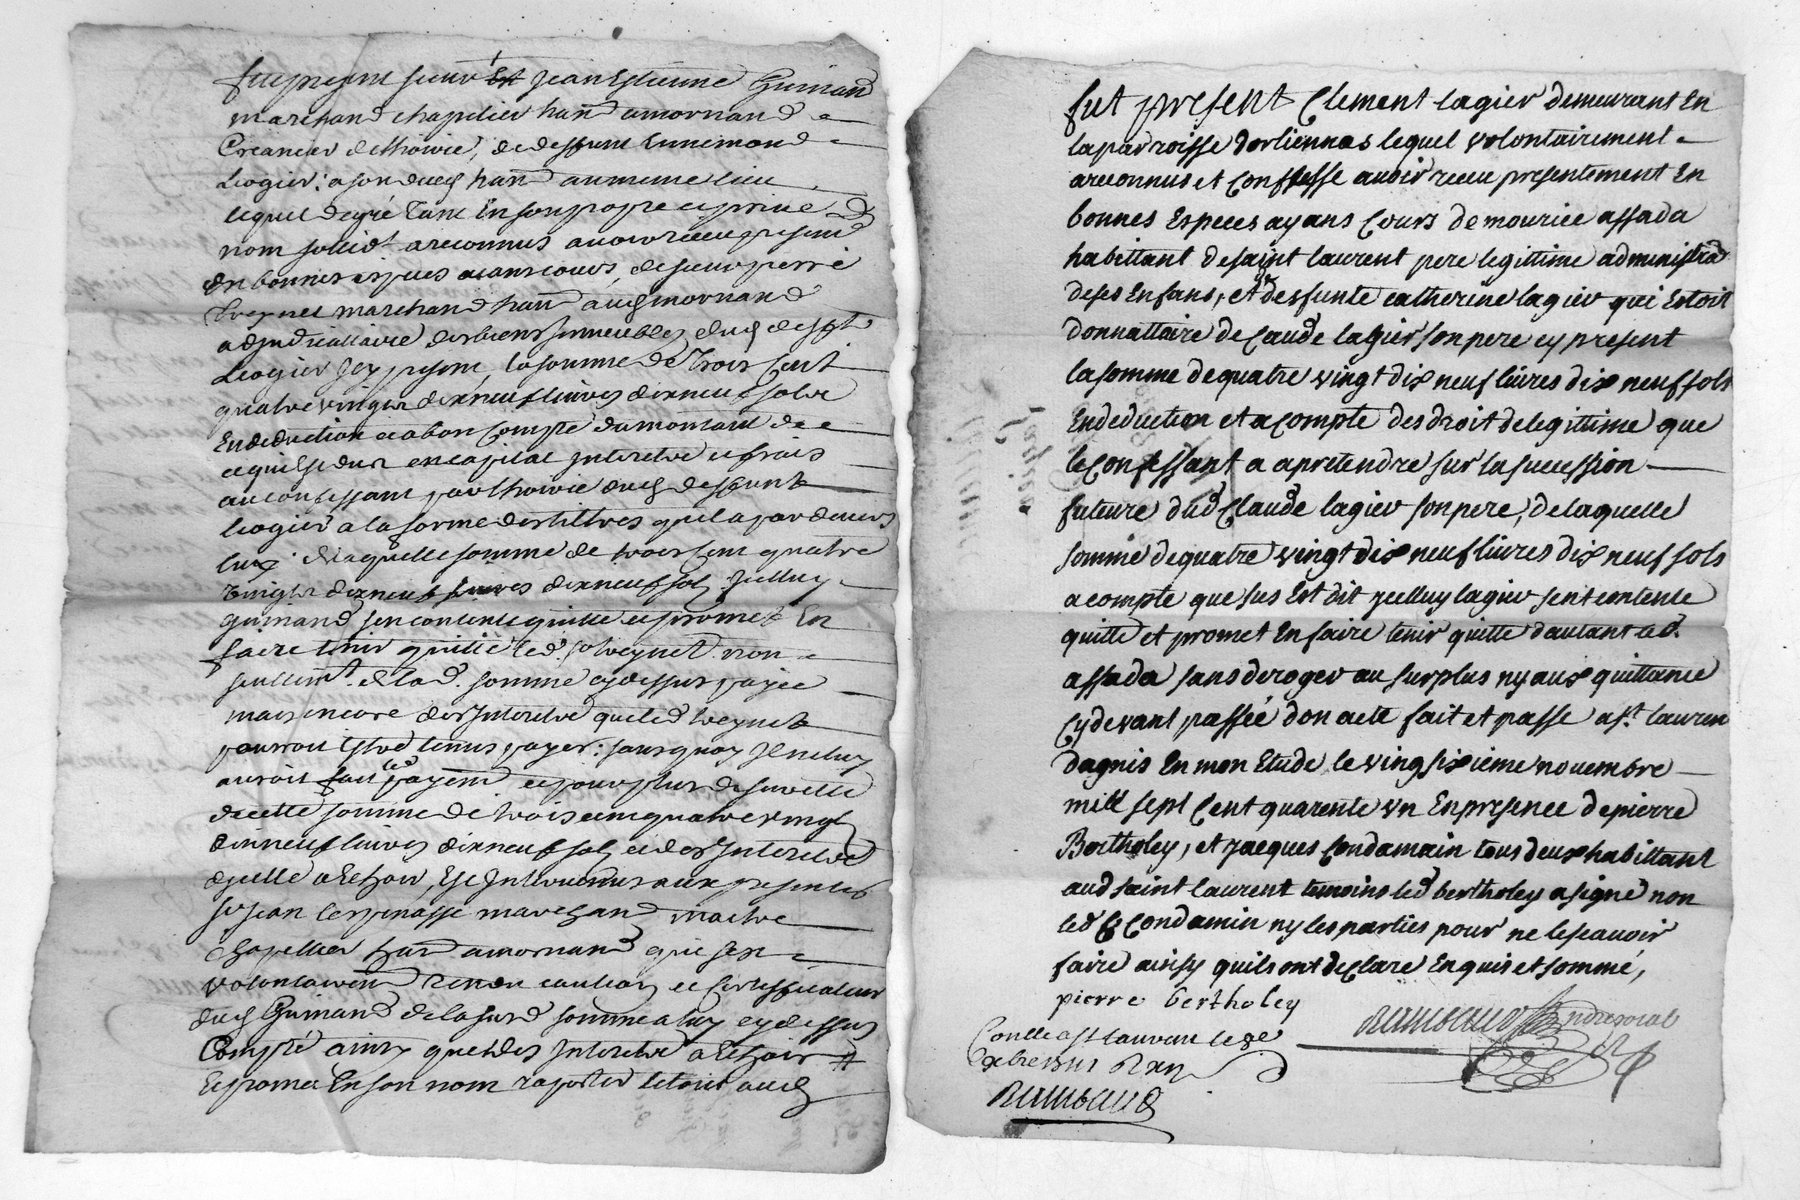 fut present sieur Jean Estienne Guinand
marchand chapelier habt a mornand
Creancier de de deffunt Ennemond
Leogier : a son habt au meme lieu
lequel de gré tant en son propre et prive
nom a reconnus avoir receu presend
en bonnes especes aians cours, de sieur pierre
treynet marchand habt mornand
adjudicattaire des biens immeubles dud defft
Leogier icy present, la somme de trois cent
quatre vingt dix neuf livres dix neuf sols
En deduction et a bon Compte du montant de
ce qui est du en capital interets et frais
au confessant par dud deffunt
leogier a la forme des tiltres quil a par devers
luy : de laquelle somme de trois cent quatre
vingt dix neuf livres dix neuf sols icelluy
guinand sen contente quitte et promet En
faire tenir quitte led. sr treynet non
seullemt. de lad. somme cy dessus payée
mais encore des interets que led treynet
pourroit estre tenus payer :
auroit fait payem et pour plus de
de cette somme de trois cent quatre vingt
dix neuf livres dix neuf sols et des interets
dicelle a Echoir, Est Intervenus aux presentes
sr Jean lespinasse marchand maitre
chapellier habt a mornand qui sest
volontairemt rendu caution et certifficateur
dud Guinand de la susd somme a luy cy dessus
Compté ainsy que des interets a Echoir
Et promet En son nom raporter le tout aud
fut present Clement lagier demeurant En
la parroisse dorliennas lequel volontairement
a reconnus et Conffesse avoir receu presentement En
bonnes Especes ayans Cours de mourice assada
habittant de saint laurent pere legittime administra
de ses Enfans, et de deffunte catherine lagier qui Estoit
donnattaire de Claude lagier son pere cy present
la somme de quatre vingt dix neuf livres dix neuf sols
En deduction et a compte des droit de legittime que
le Confessant a a pretendre sur la succession
future dud Claude lagier son pere, de laquelle
somme de quatre vingt dix neuf livres dix neuf sols
a compte que sus Est dit icelluy lagier sent contente
quitte et promet En faire tenir quitte dautant led.
assada sans deroger au surplus ny aux quittance
Cy devant passée don acte fait et passe a st. lauren
dagnis En mon Etude le vingsixieme novembre
mill sept Cent quarente un En presence de pierre
Bertholey, et Jacques Condamain tous deux habittant
aud saint laurent temoins led bertholey a signé non
led Condamin ny les parties pour ne le scavoir
faire ainsy quils ont declare Enquis et sommé,
pierre bertholey
Conlle a st laurent le
Rambaud
Rambaud